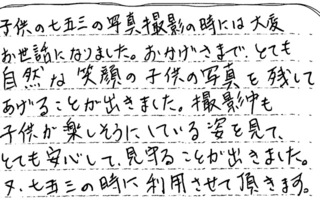 子供の七五三の写真撮影の時には大変
お世話になりました。おかげさまで、とても
自然な笑顔の子供の写真を残して
あげることが出きました。撮影中も
子供が楽しそうにしている姿を見て、
とても安心して、見守ることが出きました。
又、七五三の時に利用させて頂きます。